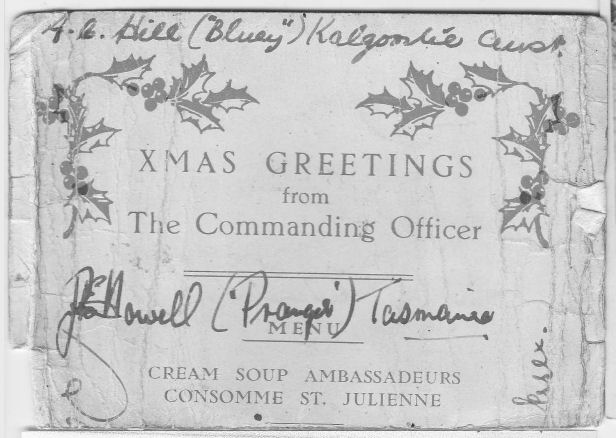 A.C. Hill ("Bluey") Kalgoorlie Aust.
XMAS GREETINGS
from
The Commanding Officer
Howell ("Pranger") Tasmania
MENU
CREAM SOUP AMBASSADEURS
CONSOMME ST. JULIENNE